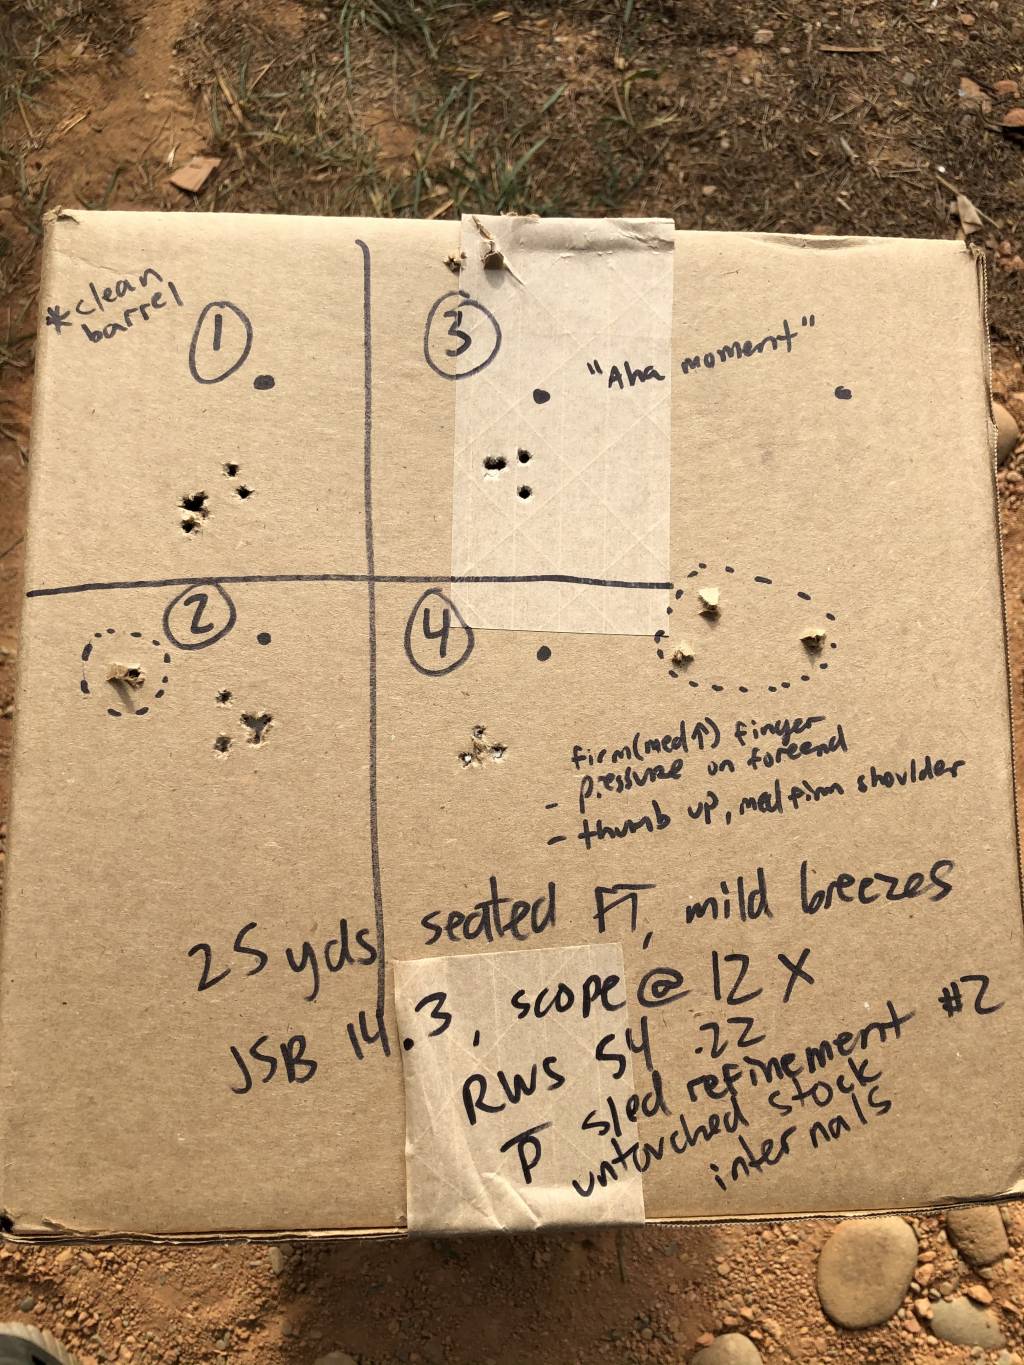 *clean
barrel
1
3
"Aha moment"
2
4
firm(med↑) finger
- pressure on foreend
- thumb up, med firm shoulder
25 yds seated FT, mild breezes
JSB 14.3, scope @ 12 X
RWS 54 .22
p̅ sled refinement #2
untouched stock
internals